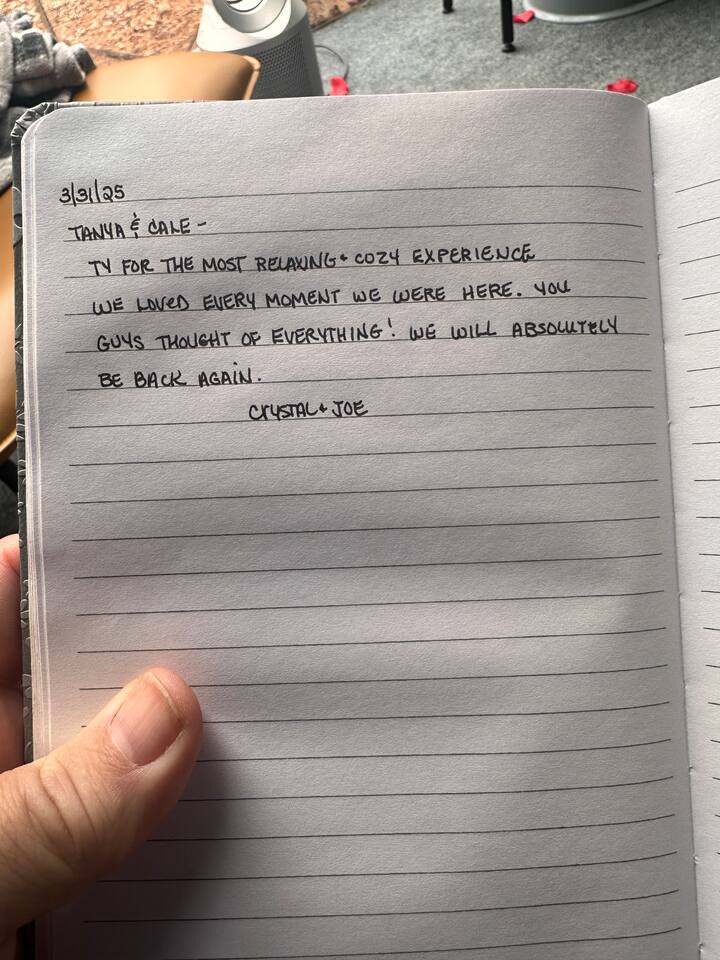 3/31/25
TANYA & CALE -
TY FOR THE MOST RELAXING + COZY EXPERIENCE
WE LOVED EVERY MOMENT WE WERE HERE. YOU
GUYS THOUGHT OF EVERYTHING! WE WILL ABSOLUTELY
BE BACK AGAIN.
CRYSTAL + JOE